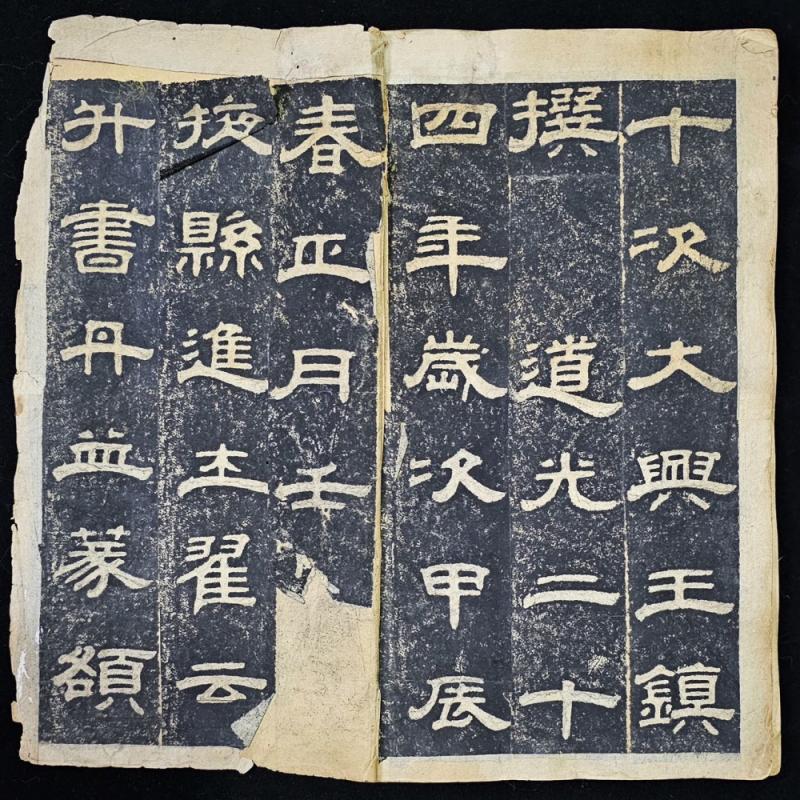 十次大興王鎮
撰 道光二十
四年歲次甲辰
春正月壬
掖縣進士翟云
升書丹並篆額